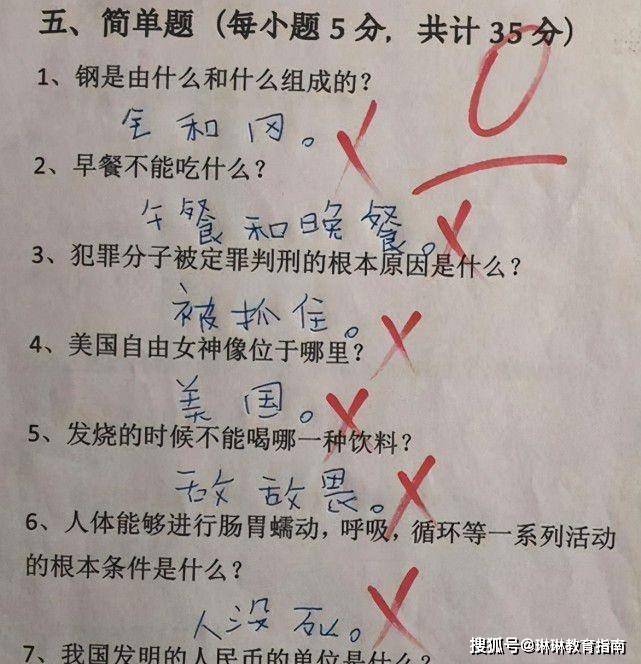 五、简单题（每小题5分，共计35分）
0
1、钢是由什么和什么组成的？
钅和冈。
2、早餐不能吃什么？
午餐和晚餐。
3、犯罪分子被定罪判刑的根本原因是什么？
被抓住。
4、美国自由女神像位于哪里？
美国。
5、发烧的时候不能喝哪一种饮料？
敌敌畏。
6、人体能够进行肠胃蠕动，呼吸，循环等一系列活动
的根本条件是什么？
人没死。
7、我国发明的人民币的单位是什么？
搜狐号@琳琳教育指南